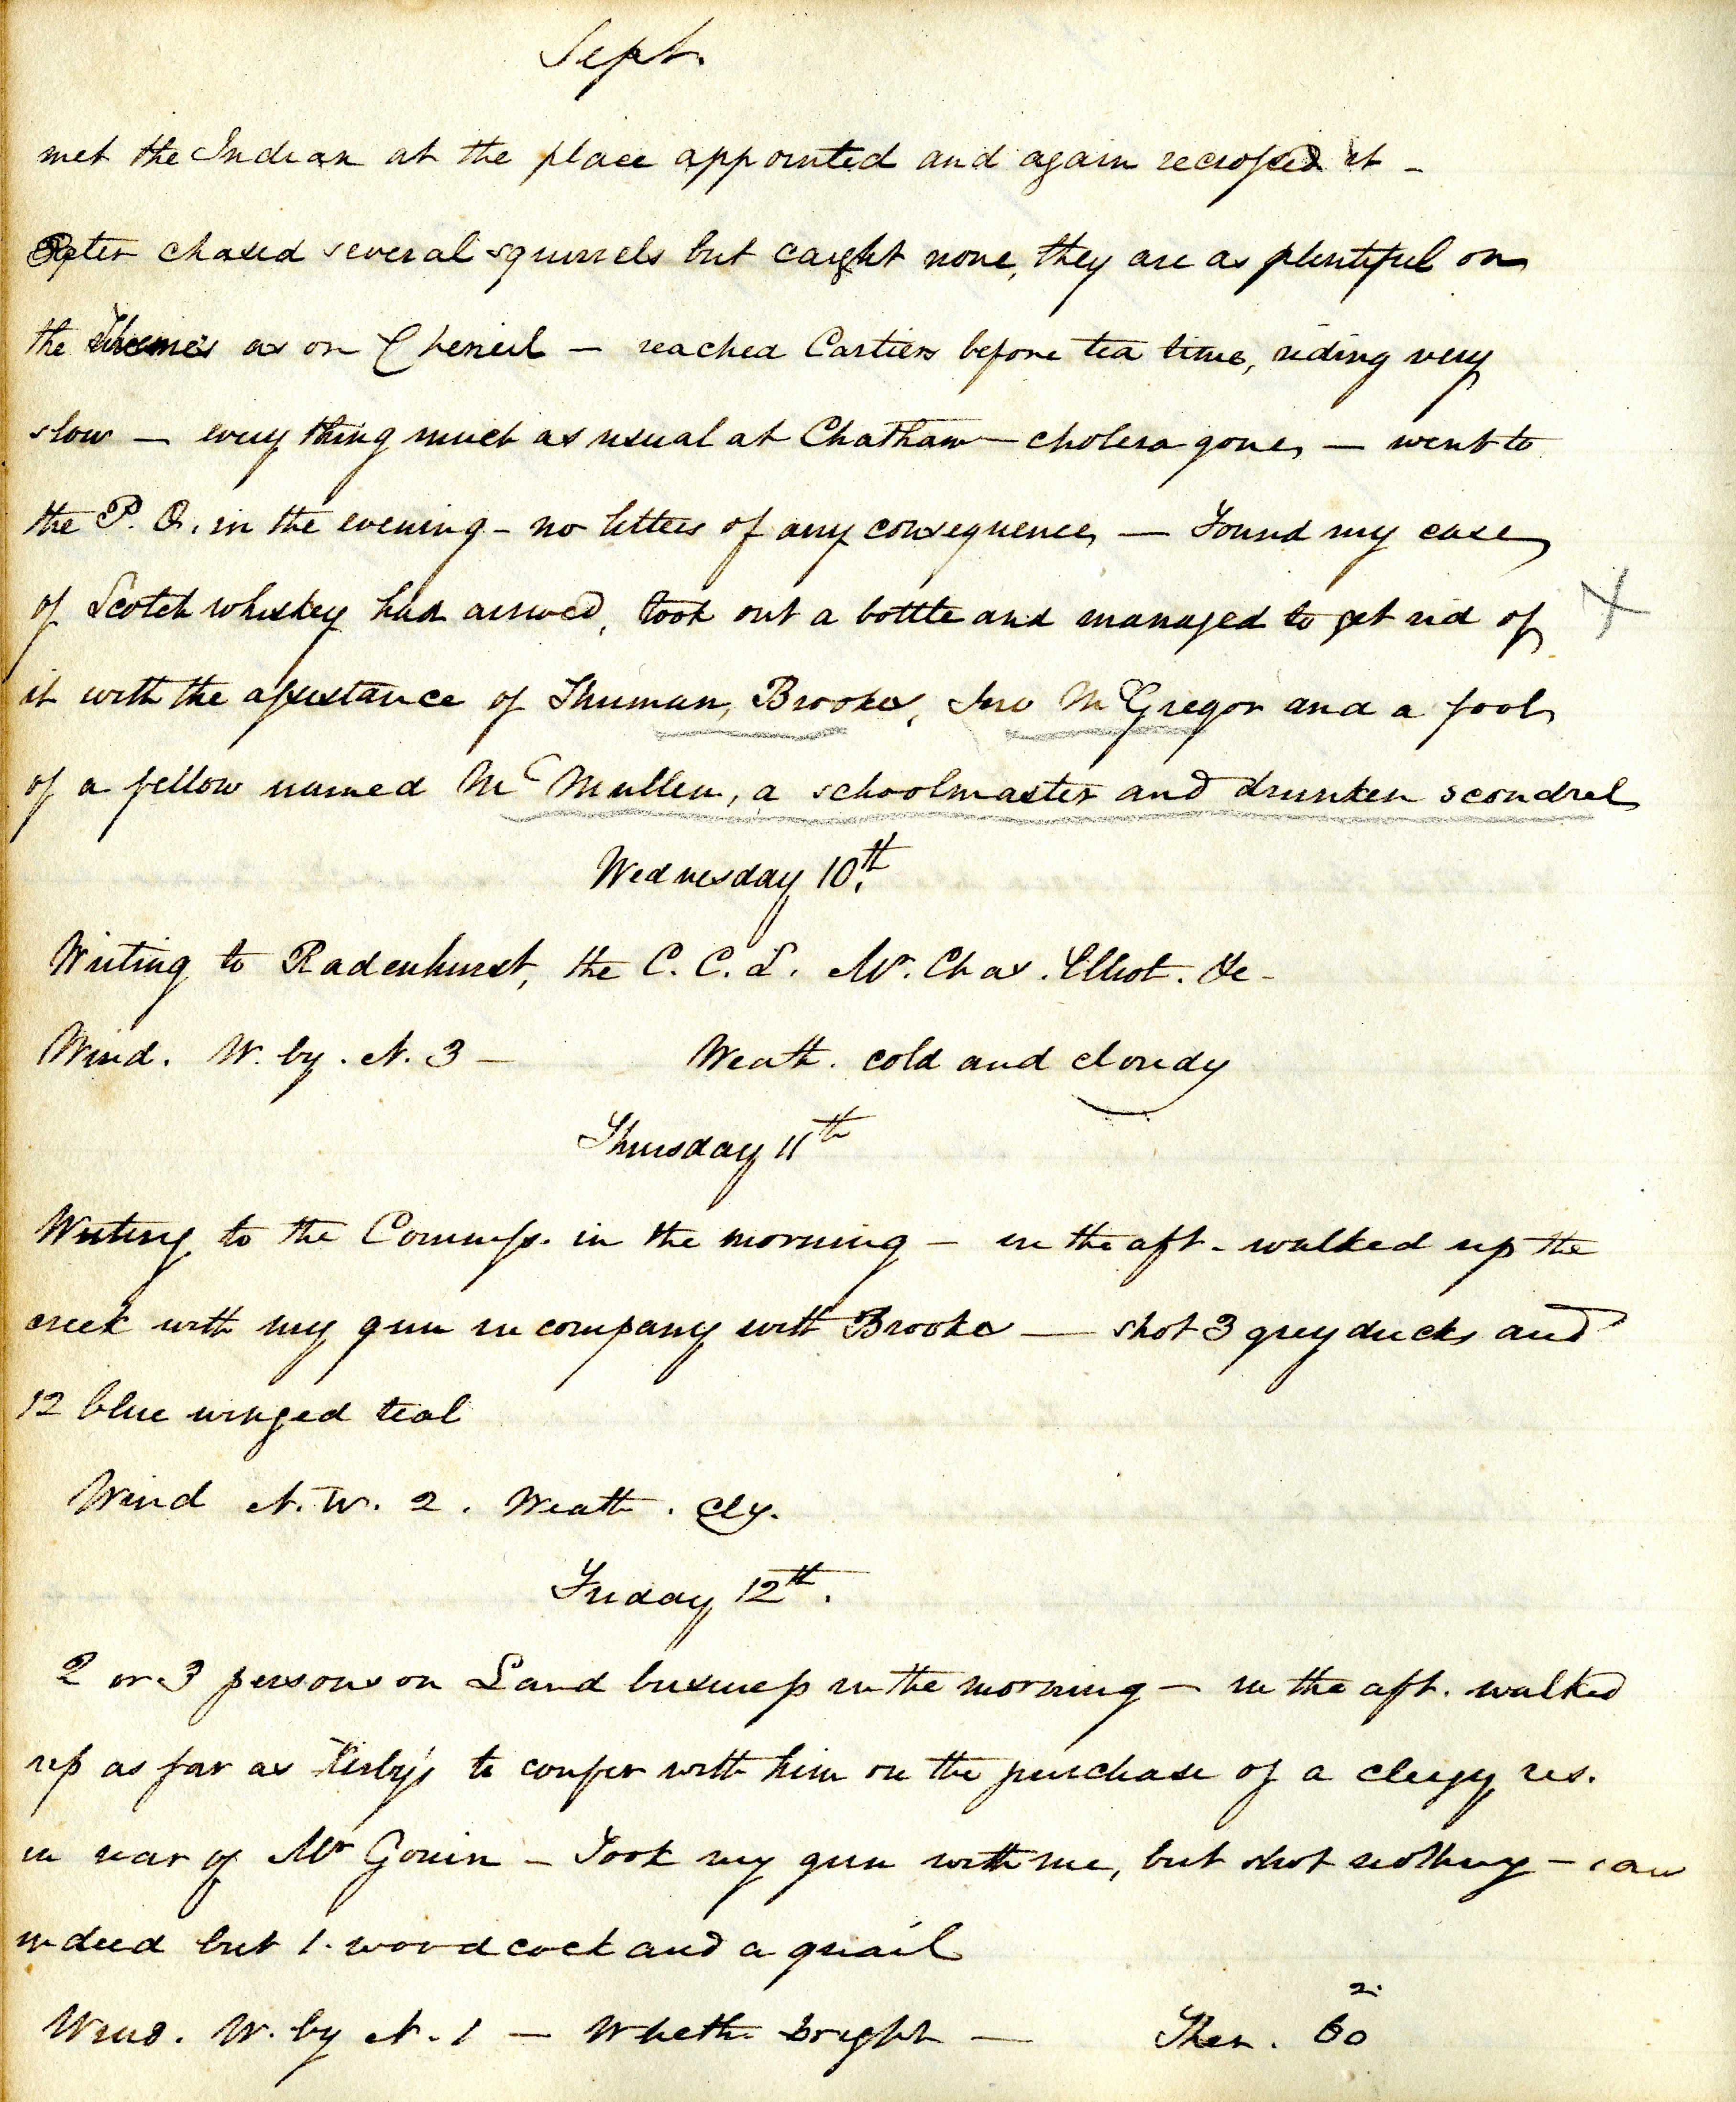 Sept.
met the Indian at the place appointed and again recrossed it -
Peter chased several squirrels but caught none, they are as plentiful on
the Thames as on Cheneil — reached Cartiers before tea time, riding very
slow — every thing much as usual at Chatham — cholera gone, — went to
the P. O. in the evening - no letters of any consequence, — Found my case
of Scotch whiskey had arrived, took out a bottle and managed to get rid of
it with the assistance of Brooke, Jno McGregor and a fool
of a fellow named McMullen, a schoolmaster and drunken scondrel
Wednesday 10th.
Writing to Radenhurst, the C. C. L. Mr. Chas. Elliot. &c -
Wind. W. by. N. 3 - Weath. cold and cloudy
Thursday 11th
Writing to the Commss. in the morning - in the aft. walked up the
creek with my gun in company with Brooke — shot 3 grey ducks and
12 blue winged teal
Wind N. W. 2. Weath. cly.
Friday 12th.
2 or 3 persons on Land business in the morning - in the aft. walked
up as far as to confer with him on the purchase of a clergy res.
in rear of Mr Gouin - Took my gun with me, but shot nothing - saw
indeed but 1. woodcock and a quail
Wind. W. by N. 1 — Wheth. bright — Ther. 60
2.